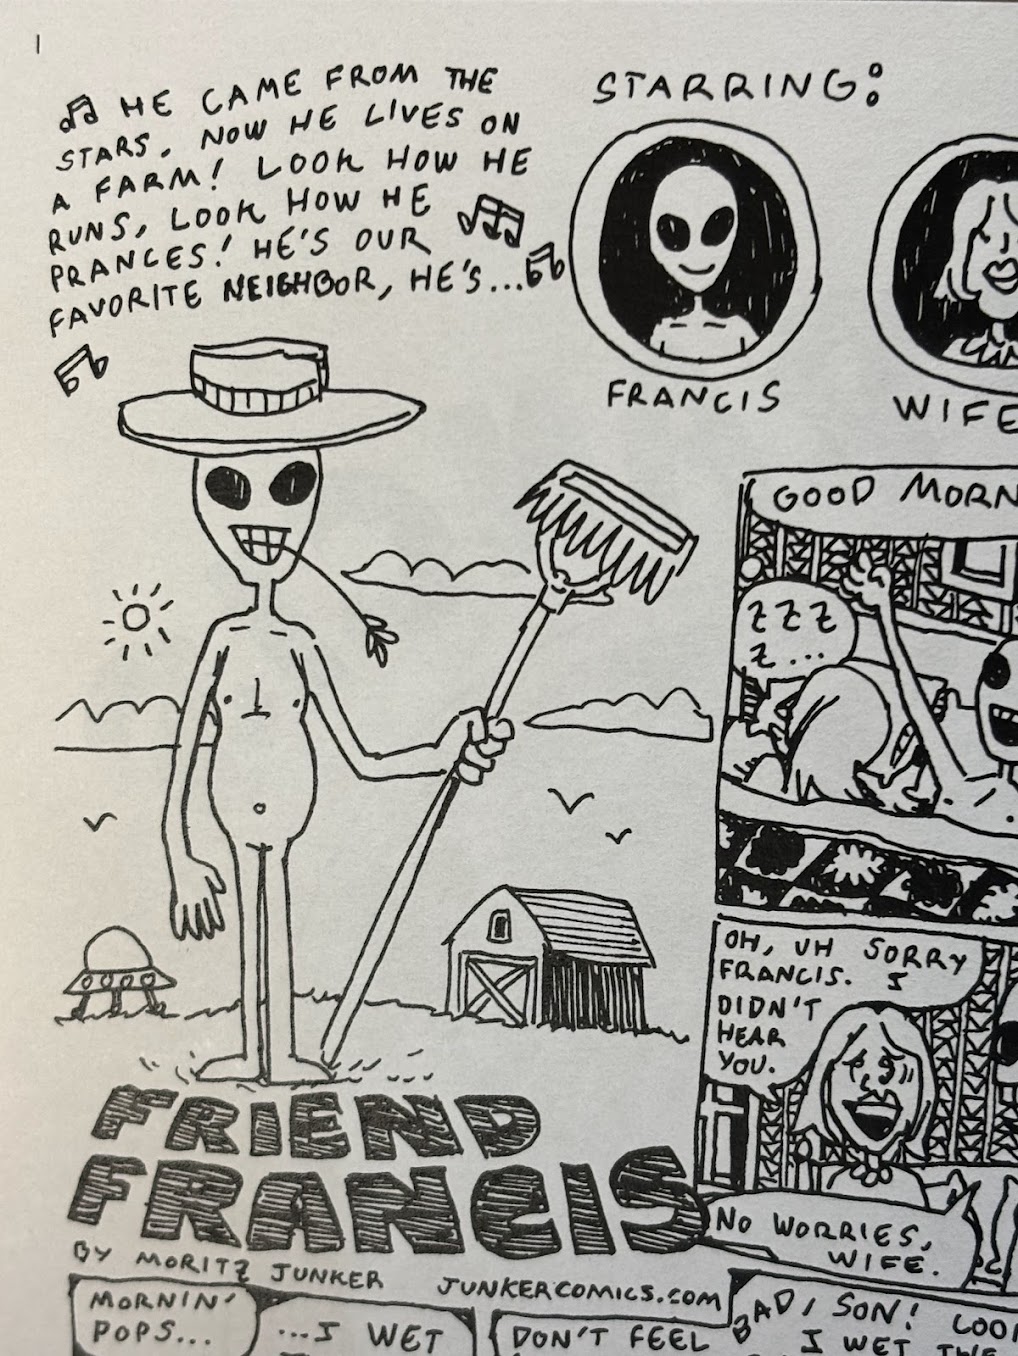 1
HE CAME FROM THE
STARS, NOW HE LIVES ON
A FARM! LOOK HOW HE
RUNS, LOOK HOW HE
PRANCES! HE'S OUR
FAVORITE NEIGHBOR, HE'S...
STARRING:
FRANCIS
WIFE
GOOD MORN
Z Z Z
Z...
OH, UH SORRY
FRANCIS. I
DIDN'T
HEAR
YOU.
NO WORRIES,
WIFE.
FRIEND
FRANCIS
BY MORITZ JUNKER JUNKERCOMICS.COM
MORNIN'
POPS...
...I WET
DON'T FEEL
BAD, SON! LOO
I WET THE